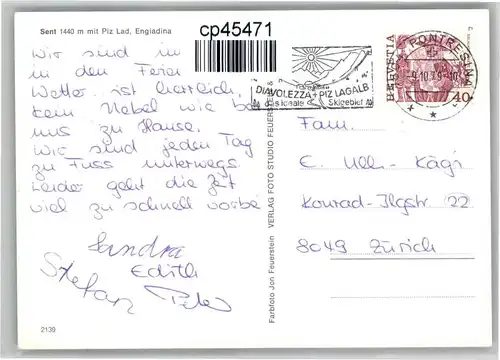 Sent 1440 m mit Piz Lad, Engiadina
cp45471
Wir sind im
in den Ferien
Wetter ist herrlich,
kein Nebel wie bei
uns zu Hause.
Wir sind jeden Tag
zu Fuss unterwegs.
Leider geht die Zeit
viel zu schnell vorbei
Sandra
Edith
Stefan
Peter
2139
Farbfoto Jon Feuerstein VERLAG FOTO STUDIO FEUERSTEIN
DIAVOLEZZA + PIZ LAGALB
Skigebiet
PONTRESINA
9.10.79-10
HELVETIA
40
Fam.
C. Ulli-Kägi
Konrad-Ilgstr 22
8049 Zürich